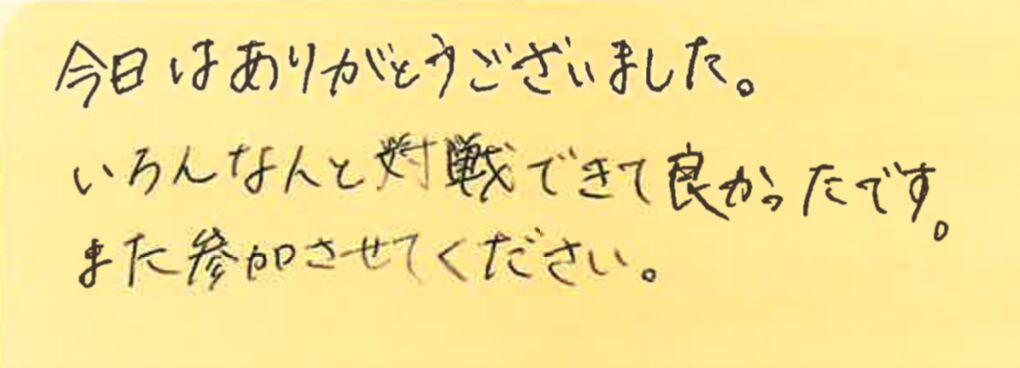 今日はありがとうございました。
いろんなんと対戦できて良かったです。
また参加させてください。